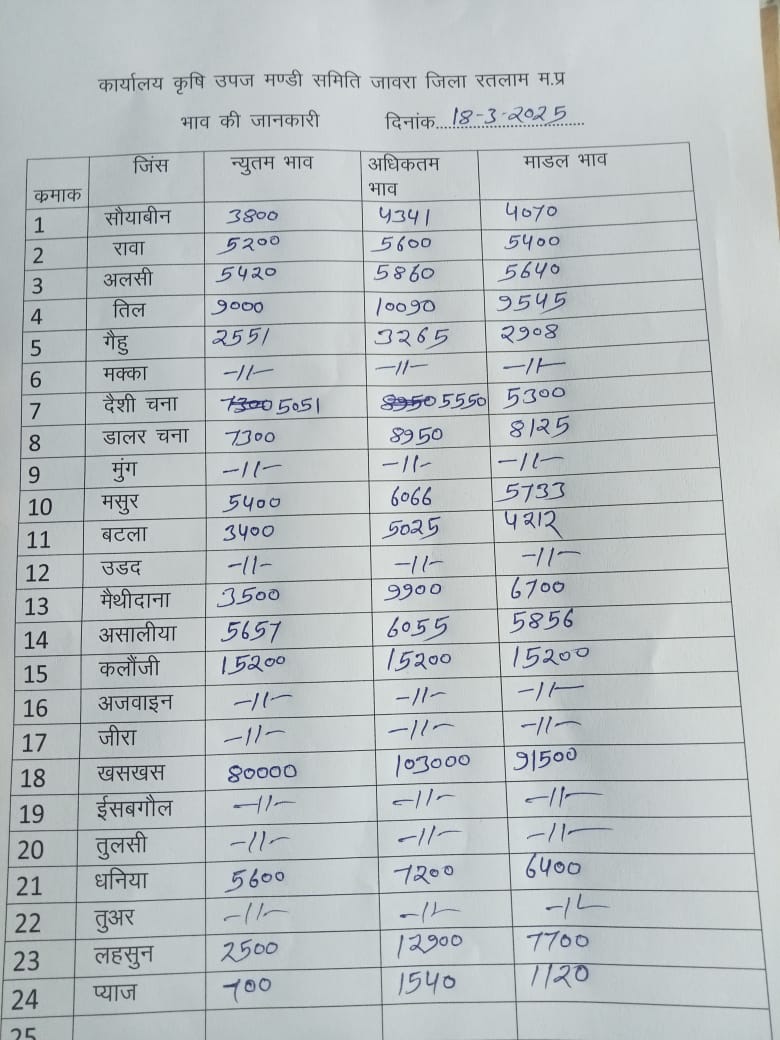 कार्यालय कृषि उपज मण्डी समिति जावरा जिला रतलाम म.प्र
भाव की जानकारी दिनांक....18-3-2025....
कमाक जिंस न्युतम भाव अधिकतम भाव माडल भाव
1 सौयाबीन 3800 4341 4070
2 रावा 5200 5600 5400
3 अलसी 5420 5860 5640
4 तिल 9000 10090 9545
5 गैहु 2551 3265 2908
6 मक्का -11- -11- -11-
7 दैशी चना 7300 5051 8950 5550 5300
8 डालर चना 7300 8950 8125
9 मुंग -11- -11- -11-
10 मसुर 5400 6066 5733
11 बटला 3400 5025 4212
12 उडद -11- -11- -11-
13 मैथीदाना 3500 9900 6700
14 असालीया 5657 6055 5856
15 कलौंजी 15200 15200 15200
16 अजवाइन -11- -11- -11-
17 जीरा -11- -11- -11-
18 खसखस 80000 103000 91500
19 ईसबगौल -11- -11- -11-
20 तुलसी -11- -11- -11-
21 धनिया 5600 7200 6400
22 तुअर -11- -11- -11-
23 लहसुन 2500 12900 7700
24 प्याज 700 1540 1120
25